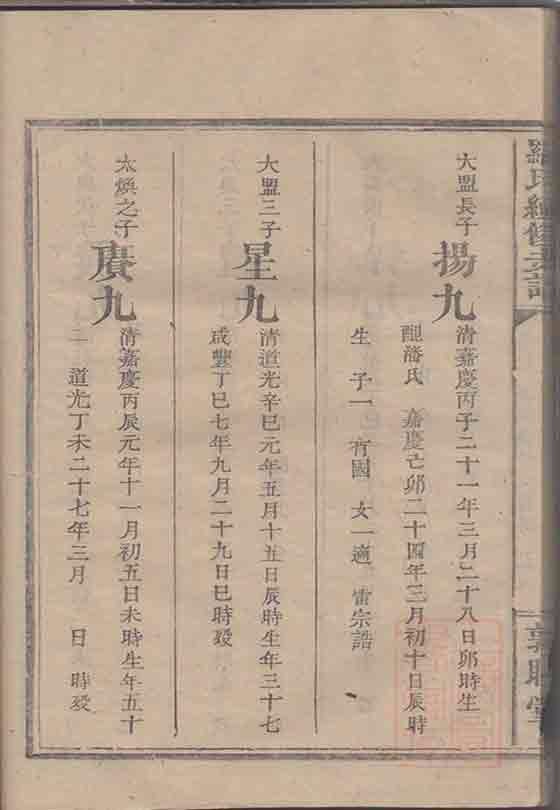 大盟長子
揚九
清嘉慶丙子二十一年三月二十八日卯時生
配潘氏 嘉慶己卯二十四年三月初十日辰時
生 子一 育國 女一適 雷宗誥
大盟三子
星九
清道光辛巳元年五月十五日辰時生年三十七
咸豐丁巳七年九月二十九日巳時歿
太煥之子
賡九
清嘉慶丙辰元年十一月初五日未時生年五十
二 道光丁未二十七年三月 日 時歿